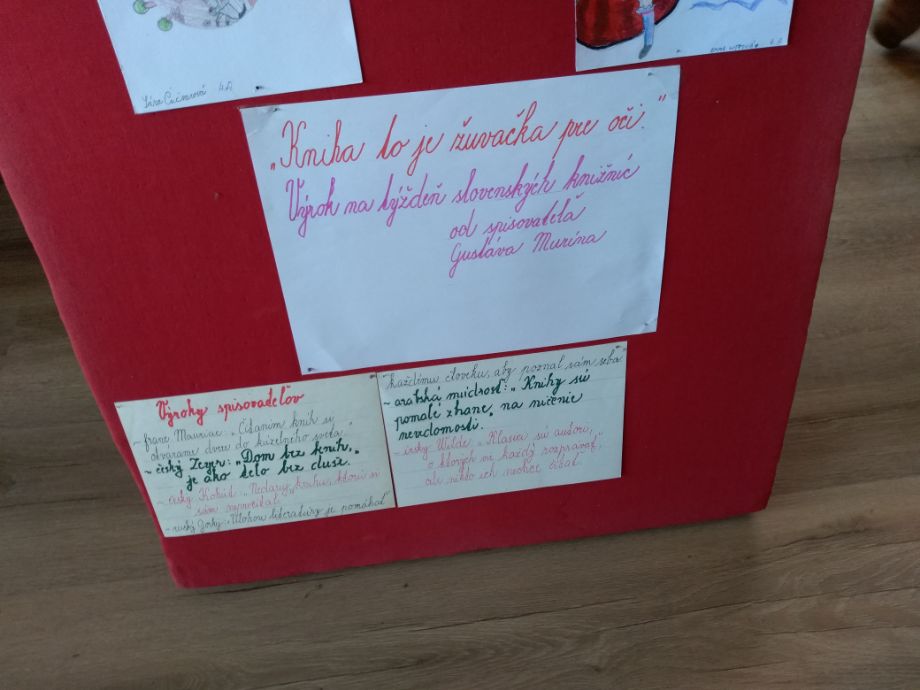 Sára Čučmová 4.A
„Kniha to je žuvačka pre oči."
Výrok na týždeň slovenských knižníc
od spisovateľa
Gustáva Murína
Výroky spisovateľov
~ franc Mauriac: „Čítaním kníh si
otvárame dvere do kúzelného sveta."
~ český Zeyer: „Dom bez kníh,
je ako telo bez duše."
~ český Kohút: „Nedaruj knihu, ktorú si
sám neprečítal."
~ ruský Gorky: „Úlohou literatúry je pomáhať
každému človeku, aby poznal sám seba"
~ arabská múdrosť: „Knihy sú
pomalé zbrane, na ničenie
nevedomosti.
Wilde „Klasici sú autori,
o ktorých vie každý rozprávať,
ale nikto ich nechce čítať.